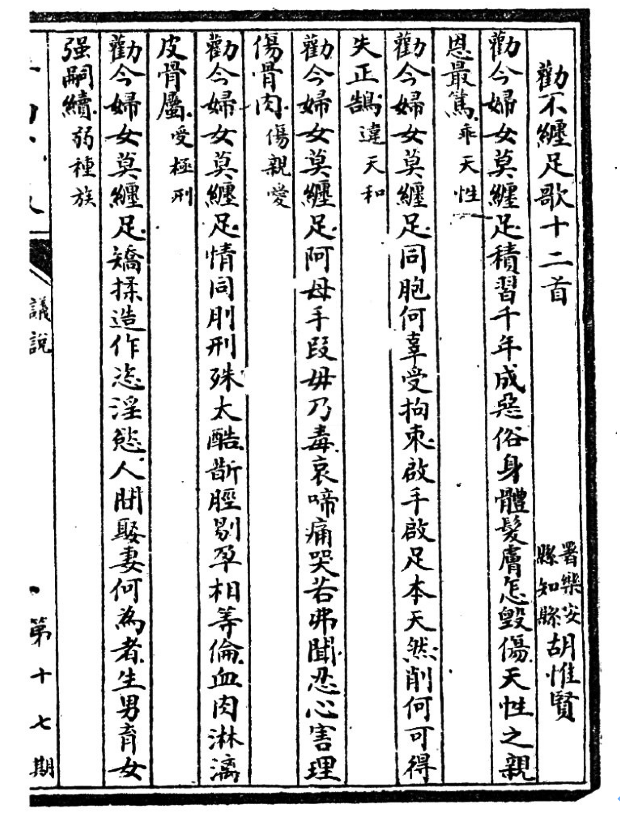 勸不纏足歌十二首 署樂安縣知縣胡惟賢
勸今婦女莫纏足積習千年成惡俗身體髮膚怎毀傷天性之親
恩最篤乖天性
勸今婦女莫纏足同胞何辜受拘束啟手啟足本天然削何可得
失正鵠違天和
勸今婦女莫纏足阿母手段毋乃毒哀啼痛哭若弗聞忍心害理
傷骨肉傷親愛
勸今婦女莫纏足情同刖刑殊太酷斮脛剔孕相等倫血肉淋漓
皮骨屬受極刑
勸今婦女莫纏足矯揉造作恣淫慾人閒娶妻何為者生男育女
强嗣續弱種族
議說
第十七期